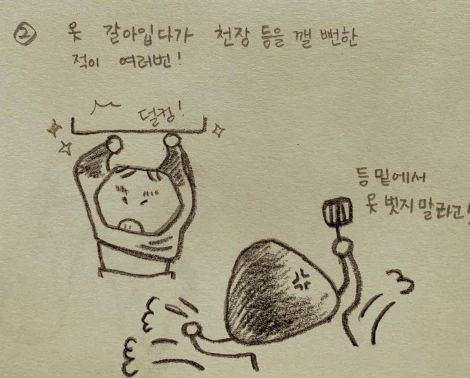 ② 옷 갈아입다가 천장 등을 깰 뻔한
적이 여러번!
덜컹!
등 밑에서
옷 벗지 말라고!